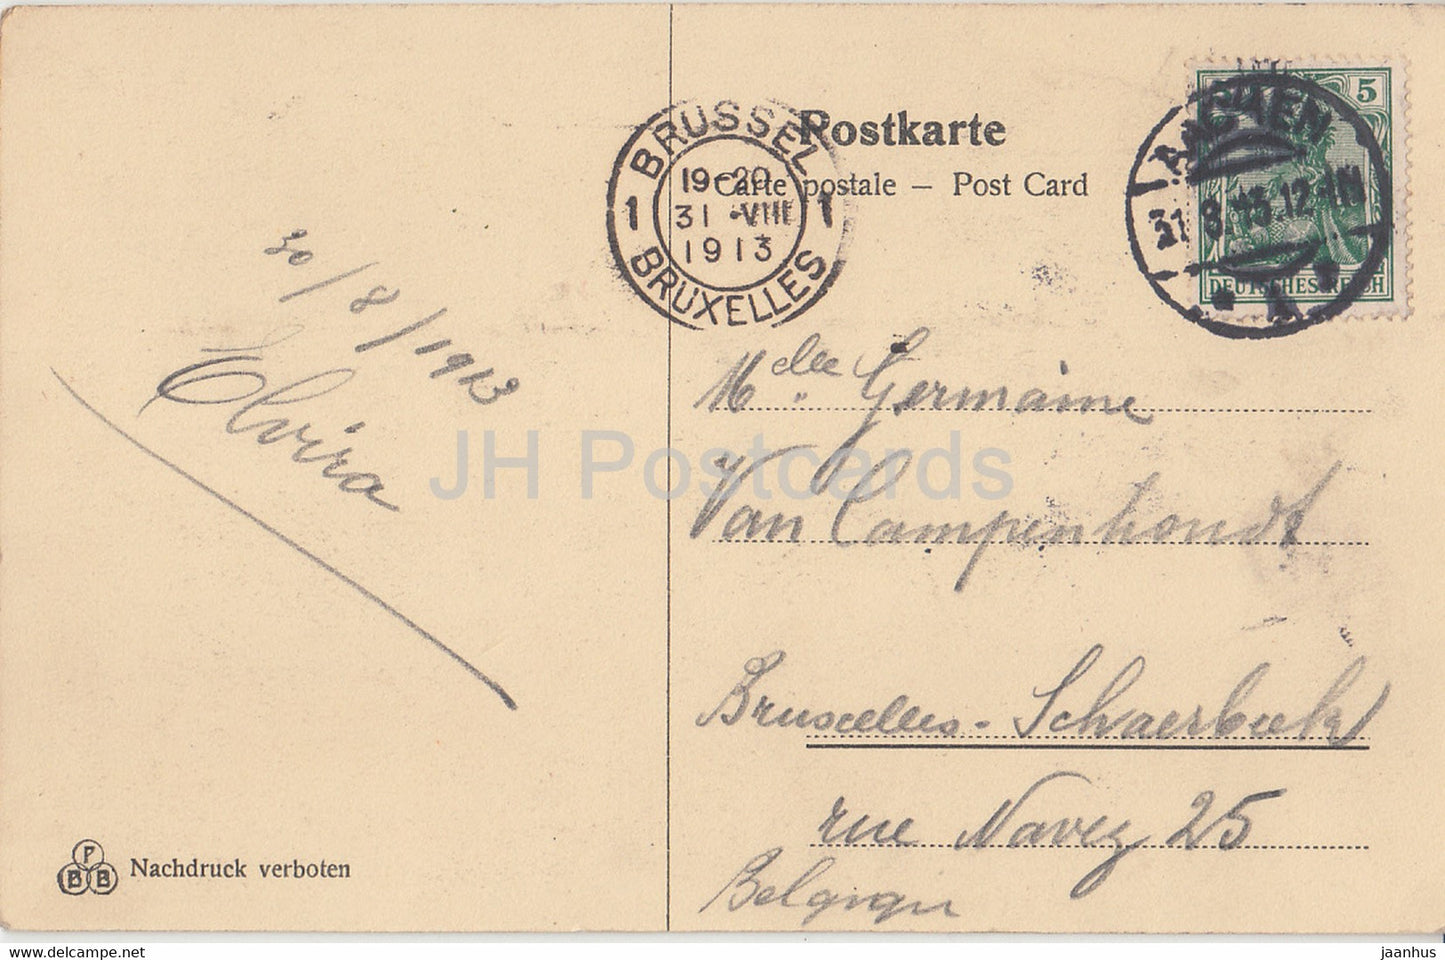 Postkarte
Carte postale – Post Card
BRUSSEL
1 19-20 1
31 VIII
1913
BRUXELLES
5
AACHEN
31.8.13.12-1N
DEUTSCHES REICH
* A *
30/8/1913
Elvira
Mdlle Germaine
Van Campenhoudt
Bruxelles-Schaerbeek
rue Navez 25
Belgique
PBB
Nachdruck verboten
JH Postcards
www.hippostcard.com/store/jaan
jaanhus